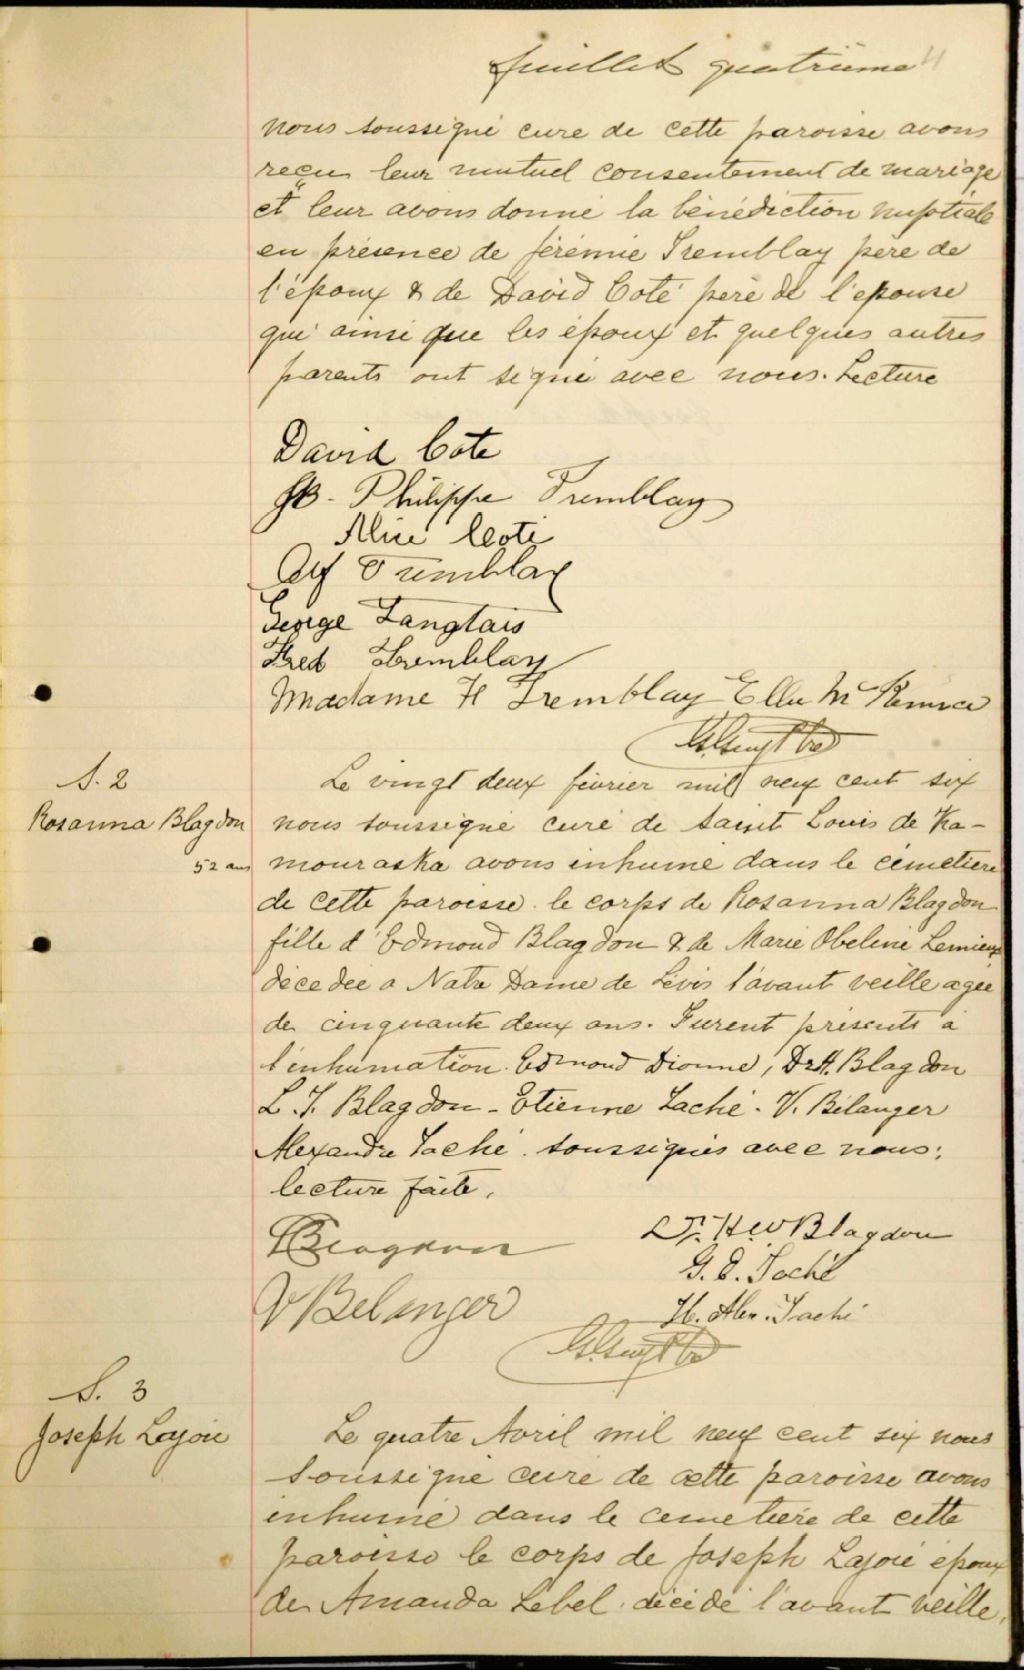 feuillet quatrième 4
nous soussigné curé de cette paroisse avons
reçu leur mutuel consentement de mariage
et leur avons donné la bénédiction nuptiale
en présence de Jérémie Tremblay père de
l'époux & de David Coté père de l'epouse
qui ainsi que les époux et quelques autres
parents ont signé avec nous. Lecture
David Cote
J.B. Philippe Tremblay
Alice Coté
Alf Tremblay
George Langlais
Fred Tremblay
Madame H Tremblay Ella Mc
Ptre
S. 2
Rosanna Blagdon
52 ans
Le vingt deux février mil neuf cent six
nous soussigné curé de Saint Louis de Ka-
mouraska avons inhumé dans le cimetière
de cette paroisse le corps de Rosanna Blagdon
fille d'Edmond Blagdon & de Marie Obeline Lemieux
décédée a Notre Dame de Lévis l'avant veille agée
de cinquante deux ans. Furent présents à
l'inhumation Edmond Dionne, Dr H. Blagdon
L. J. Blagdon - Etienne Taché - V. Bélanger
Alexandre Taché soussignés avec nous;
lecture faite.
Blagdon
Dr. H W Blagdon
G. E. Taché
V Belanger
H. Alex. Taché
Ptre
S. 3
Joseph Lajoie
Le quatre Avril mil neuf cent six nous
Soussigné curé de cette paroisse avons
inhumé dans le cemetière de cette
paroisse le corps de Joseph Lajoie époux
de Amanda Lebel décédé l'avant veille,